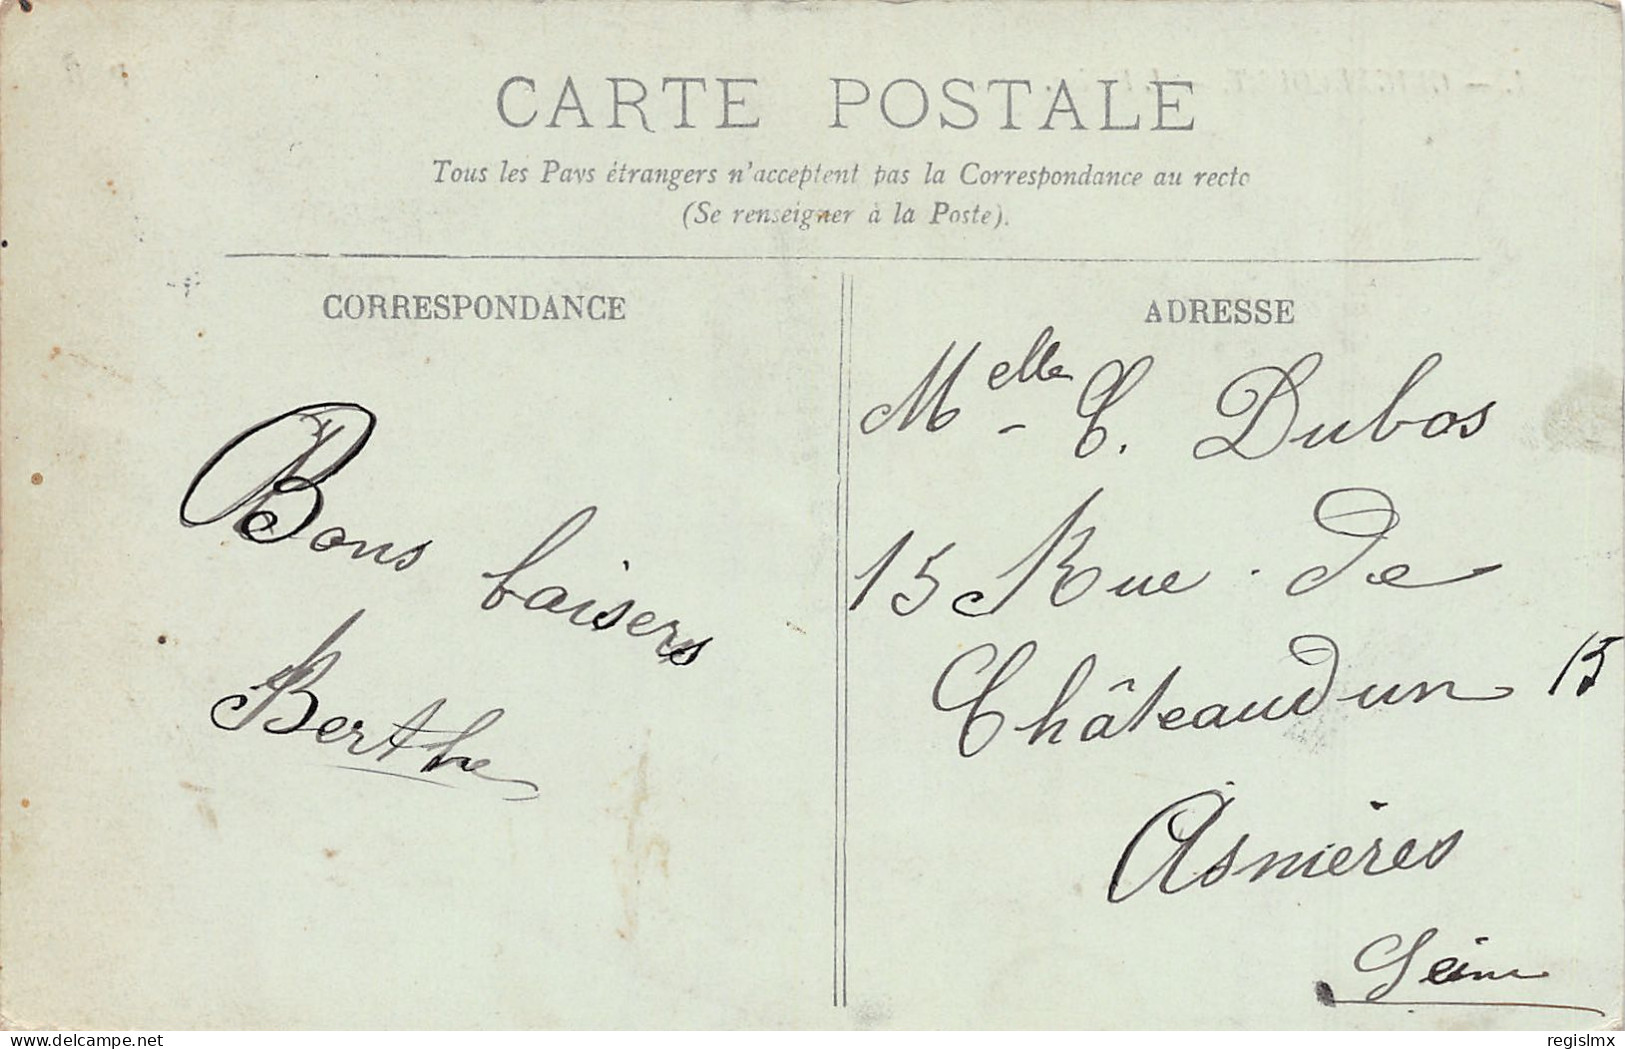 CARTE POSTALE
Tous les Pays étrangers n'acceptent pas la Correspondance au recto
(Se renseigner à la Poste).
CORRESPONDANCE
Bons baisers
Berthe
ADRESSE
Melle C. Dubos
15 Rue de
Châteaudun 15
Asnières
Seine
delcampe.net
regislmx